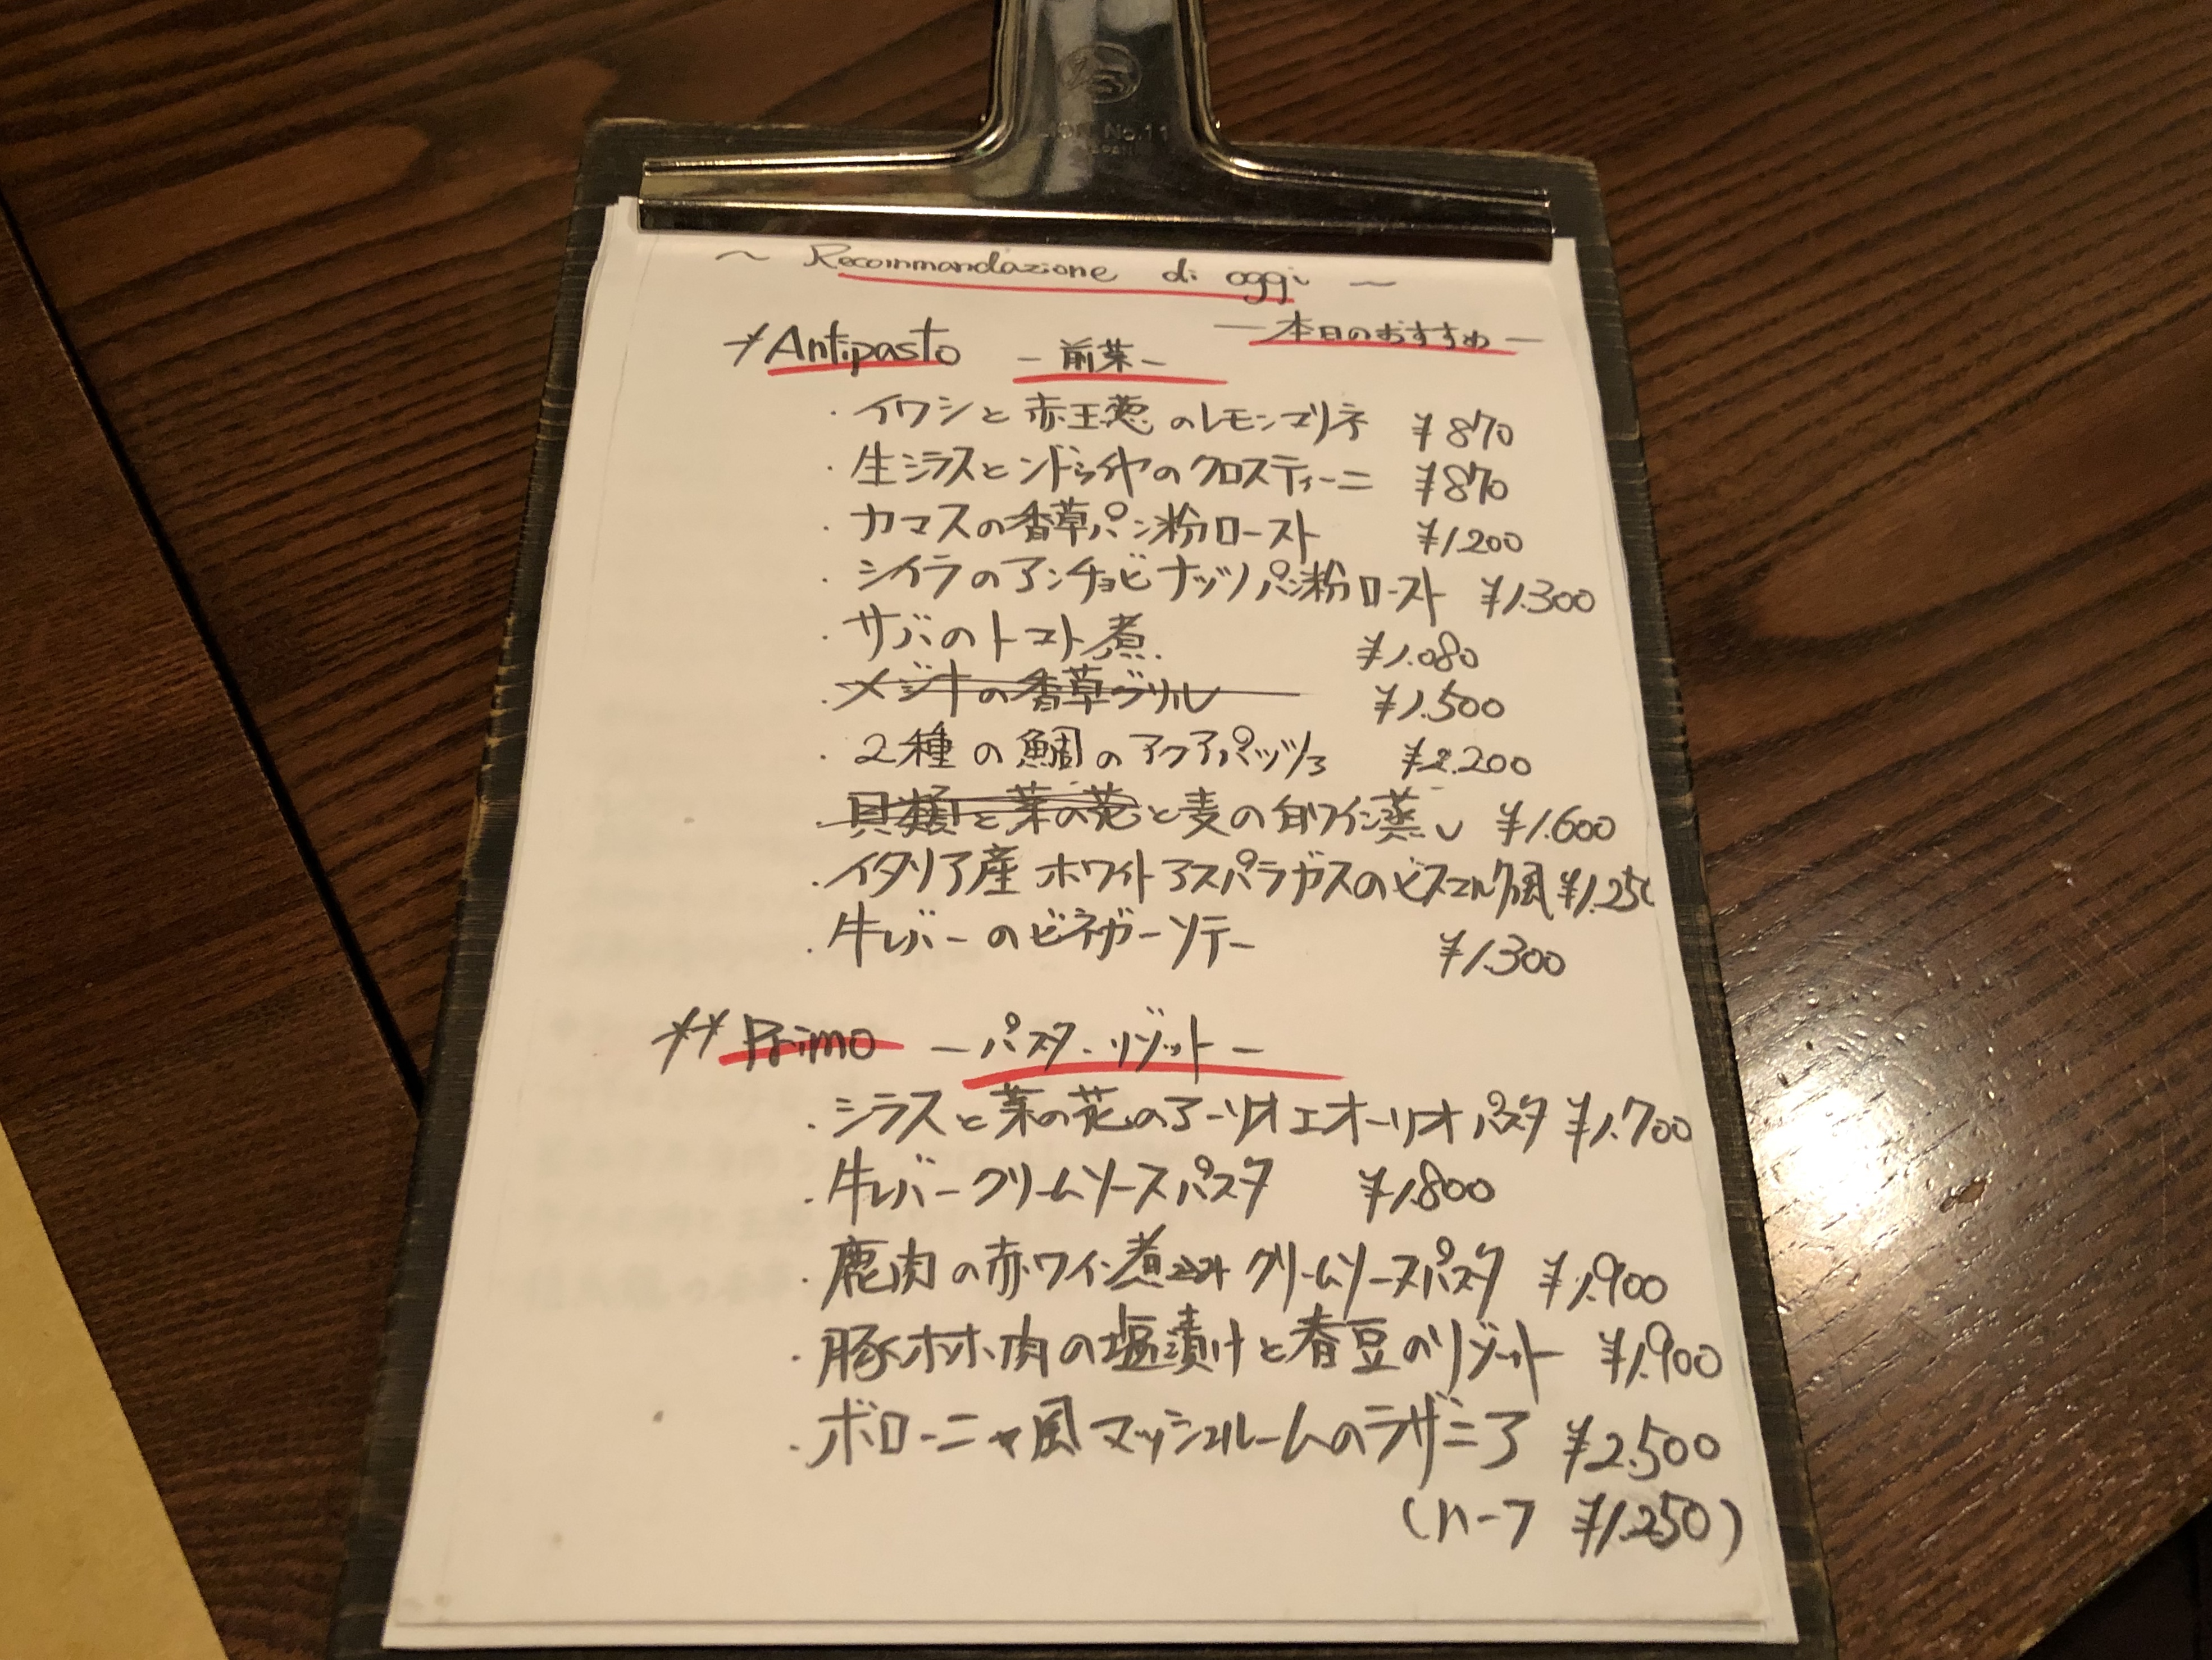 ~ Recommandazione di oggi ~
－本日のおすすめ－
*Antipasto －前菜－
・イワシと赤玉葱のレモンマリネ ¥870
・生シラスとンドゥイヤのクロスティーニ ¥870
・カマスの香草パン粉ロースト ¥1.200
・シイラのアンチョビナッツパン粉ロースト ¥1.300
・サバのトマト煮 ¥1.080
・メジナの香草グリル ¥1.500
・2種の鯛のアクアパッツァ ¥2.200
・貝類と菜の花と麦の白ワイン蒸し ¥1.600
・イタリア産ホワイトアスパラガスのビスマルク風 ¥1.250
・牛レバーのビネガーソテー ¥1.300
**Primo －パスタ・リゾット－
・シラスと菜の花のアーリオエオーリオパスタ ¥1.700
・牛レバークリームソースパスタ ¥1.800
・鹿肉の赤ワイン煮込みクリームソースパスタ ¥1.900
・豚ホホ肉の塩漬けと春豆のリゾット ¥1.900
・ボローニャ風マッシュルームのラザニア ¥2.500
(ハーフ ¥1.250)